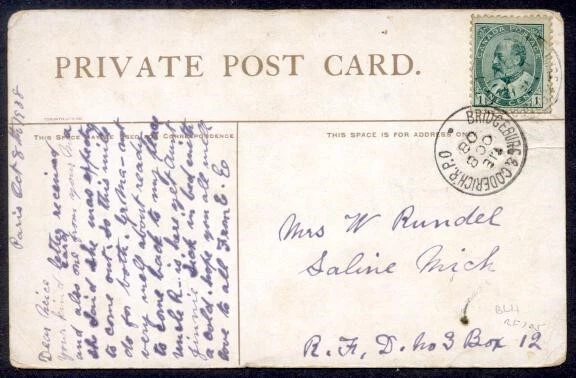 PRIVATE POST CARD.
CANADA POSTAGE
1 CENTS 1
BRIDGEBURG & GODERICH R.P.O
OC 8
THIS SPACE MAY BE USED FOR CORRESPONDENCE
THIS SPACE IS FOR ADDRESS ONLY
Paris Oct 8th
Dear Neice
your kind letter received
and also one from your
she said she was expecting
to come out. so this will
do for both. Grandma not
very well about ready
to come back to
uncle R is here yet Aunt
Jinnie sick in bed with
a cold hope you all well
love to all From E.C
Mrs W Rundel
Saline Mich
R.F.D. No 3 Box 12
BL4
RF195